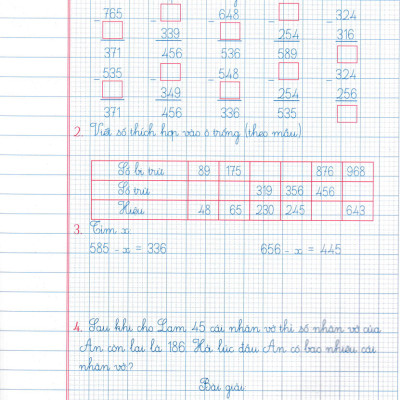 - 765 □ 371
- □ 339 456
- 648 □ 536
- □ 254 589
- 324 316 □
- 535 □ 371
- □ 349 456
- 548 □ 336
- □ 254 535
- 324 256 □
2. Viết số thích hợp vào ô trống (theo mẫu)
Số bị trừ 89 175 876 968
Số trừ 319 356 456
Hiệu 48 65 230 245 643
3. Tìm x
585 - x = 336 656 - x = 445
4. Sau khi cho Lam 45 cái nhãn vở thì số nhãn vở của
An còn lại là 186. Hỏi lúc đầu An có bao nhiêu cái
nhãn vở?
Bài giải